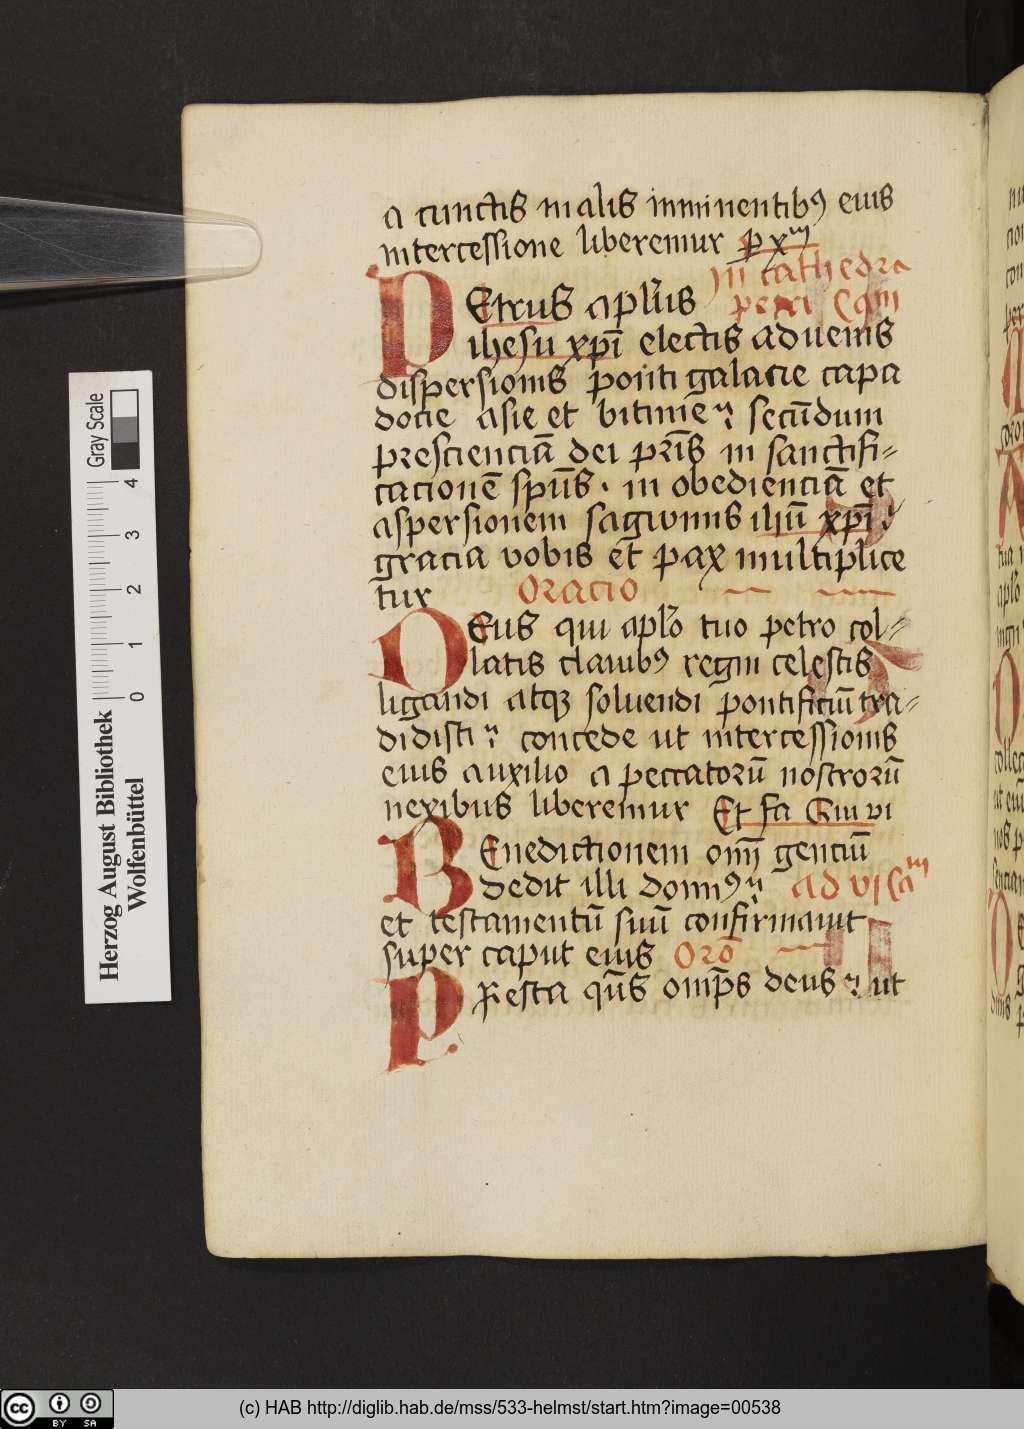 a cunctis malis imminentibꝯ eius
intercessione liberemur ꝑ xᵐ
In cathedra
PEtrus aplūs petri Capᵐ
ihesu xpī electis aduenis
dispersionis ponti galacie capa
docie asie et bitinie secūdum
prescienciā dei prīs in sanctifi⸗
cacionē spūs · in obedienciā et
aspersionem sagwinis ihū xpī
gracia vobis et pax multiplice
tur Oracio
DEus qui aplō tuo petro col⸗
latis clauibꝯ regni celestis
ligandi atqꝫ soluendi pontificiū tra⸗
didisti concede ut intercessionis
eius auxilio a peccatorū nostrorū
nexibus liberemur Et fa Qui vi
BEnedictionem omī genciū
dedit illi domnꝯ ad vi
et testamentū suū confirmauit
super caput eius Orō
PResta qūs omīps deus ut
Gray Scale
0 1 2 3 4
Herzog August Bibliothek
Wolfenbüttel
cc BY SA
(c) HAB http://diglib.hab.de/mss/533-helmst/start.htm?image=00538